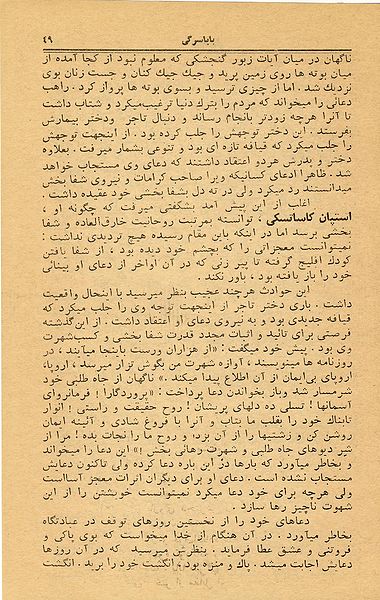 باباسرگی
۴۹
ناگهان در میان آیات زبور گنجشکی که معلوم نبود از کجا آمده از
میان بوته ها روی زمین پرید و جیك جیك کنان و جست زنان بوی
نزدیك شد . اما از چیزی ترسید و بسوی بوته ها پرواز کرد . راهب
دعائی را میخواند که مردم را بترك دنیا ترغیب میکرد و شتاب داشت
تا آنرا هرچه زودتر بانجام رساند و دنبال تاجر و دختر بیمارش
بفرستد . این دختر توجهش را جلب کرده بود . از اینجهت توجهش
را جلب میکرد که قیافه تازه ای بود و تنوعی بشمار میرفت . بعلاوه
دختر و پدرش هردو اعتقاد داشتند که دعای وی مستجاب خواهد
شد . ظاهرا ادعای کسانیکه ویرا صاحب کرامات و نیروی شفا بخش
میدانستند رد میکرد ولی در ته دل بشفا بخشی خود عقیده داشت .
اغلب از این پیش آمد بشگفتی میرفت که چگونه او ،
استپان کاساتسکی ، توانسته بمرتبت روحانیت خارق‌العاده و شفا
بخشی برسد اما در اینکه باین مقام رسیده هیچ تردیدی نداشت :
نمیتوانست معجزاتی را که بچشم خود دیده بود ، از شفا یافتن
کودك افلیج گرفته تا پیر زنی که در آن اواخر از دعای او بینائی
خود را باز یافته بود ، باور نکند .
این حوادث هرچند عجیب بنظر میرسید با اینحال واقعیت
داشت . باری دختر تاجر از اینجهت توجه وی را جلب میکرد که
قیافه جدیدی بود و به نیروی دعای او اعتقاد داشت . از این گذشته
فرصتی برای تائید و اثبات مجدد قدرت شفا بخشی و کسب شهرت
وی بود . پیش خود میگفت : «از هزاران ورست باینجا میآیند ، در
روزنامه ها مینویسند ، آوازه شهرت من بگوش تزار میرسد ، اروپا،
اروپای بی‌ایمان از آن اطلاع پیدا میکند.» ناگهان از جاه طلبی خود
شرمسار شد و باز بخواندن دعا پرداخت : «پروردگارا ! فرمانروای
آسمانها ! تسلی ده دلهای پریشان ! روح حقیقت و راستی ! انوار
تابناك خود را بقلب ما بتاب و آنرا با فروغ شادی و آئینه ایمان
روشن کن و زشتیها را از آن بزدا و روح ما را نجات بده ! مرا از
شر دیوهای جاه طلبی و شهرت رهائی بخش !» این دعا را میخواند
و بخاطر میآورد که بارها در این باره دعا کرده ولی تاکنون دعایش
مستجاب نشده است . دعای او برای دیگران اثرات معجز آسا است
ولی هرچه برای خود دعا میکرد نمیتوانست خویشتن را از این
شهوت ناچیز رها سازد .
دعاهای خود را از نخستین روزهای توقف در عبادتگاه
بخاطر میآورد . در آن هنگام از خدا میخواست که بوی پاکی و
فروتنی و عشق عطا فرماید . بنظرش میرسید که در آن روزها
دعایش اجابت میشد . پاك و منزه بود، انگشت خود را برید . انگشت